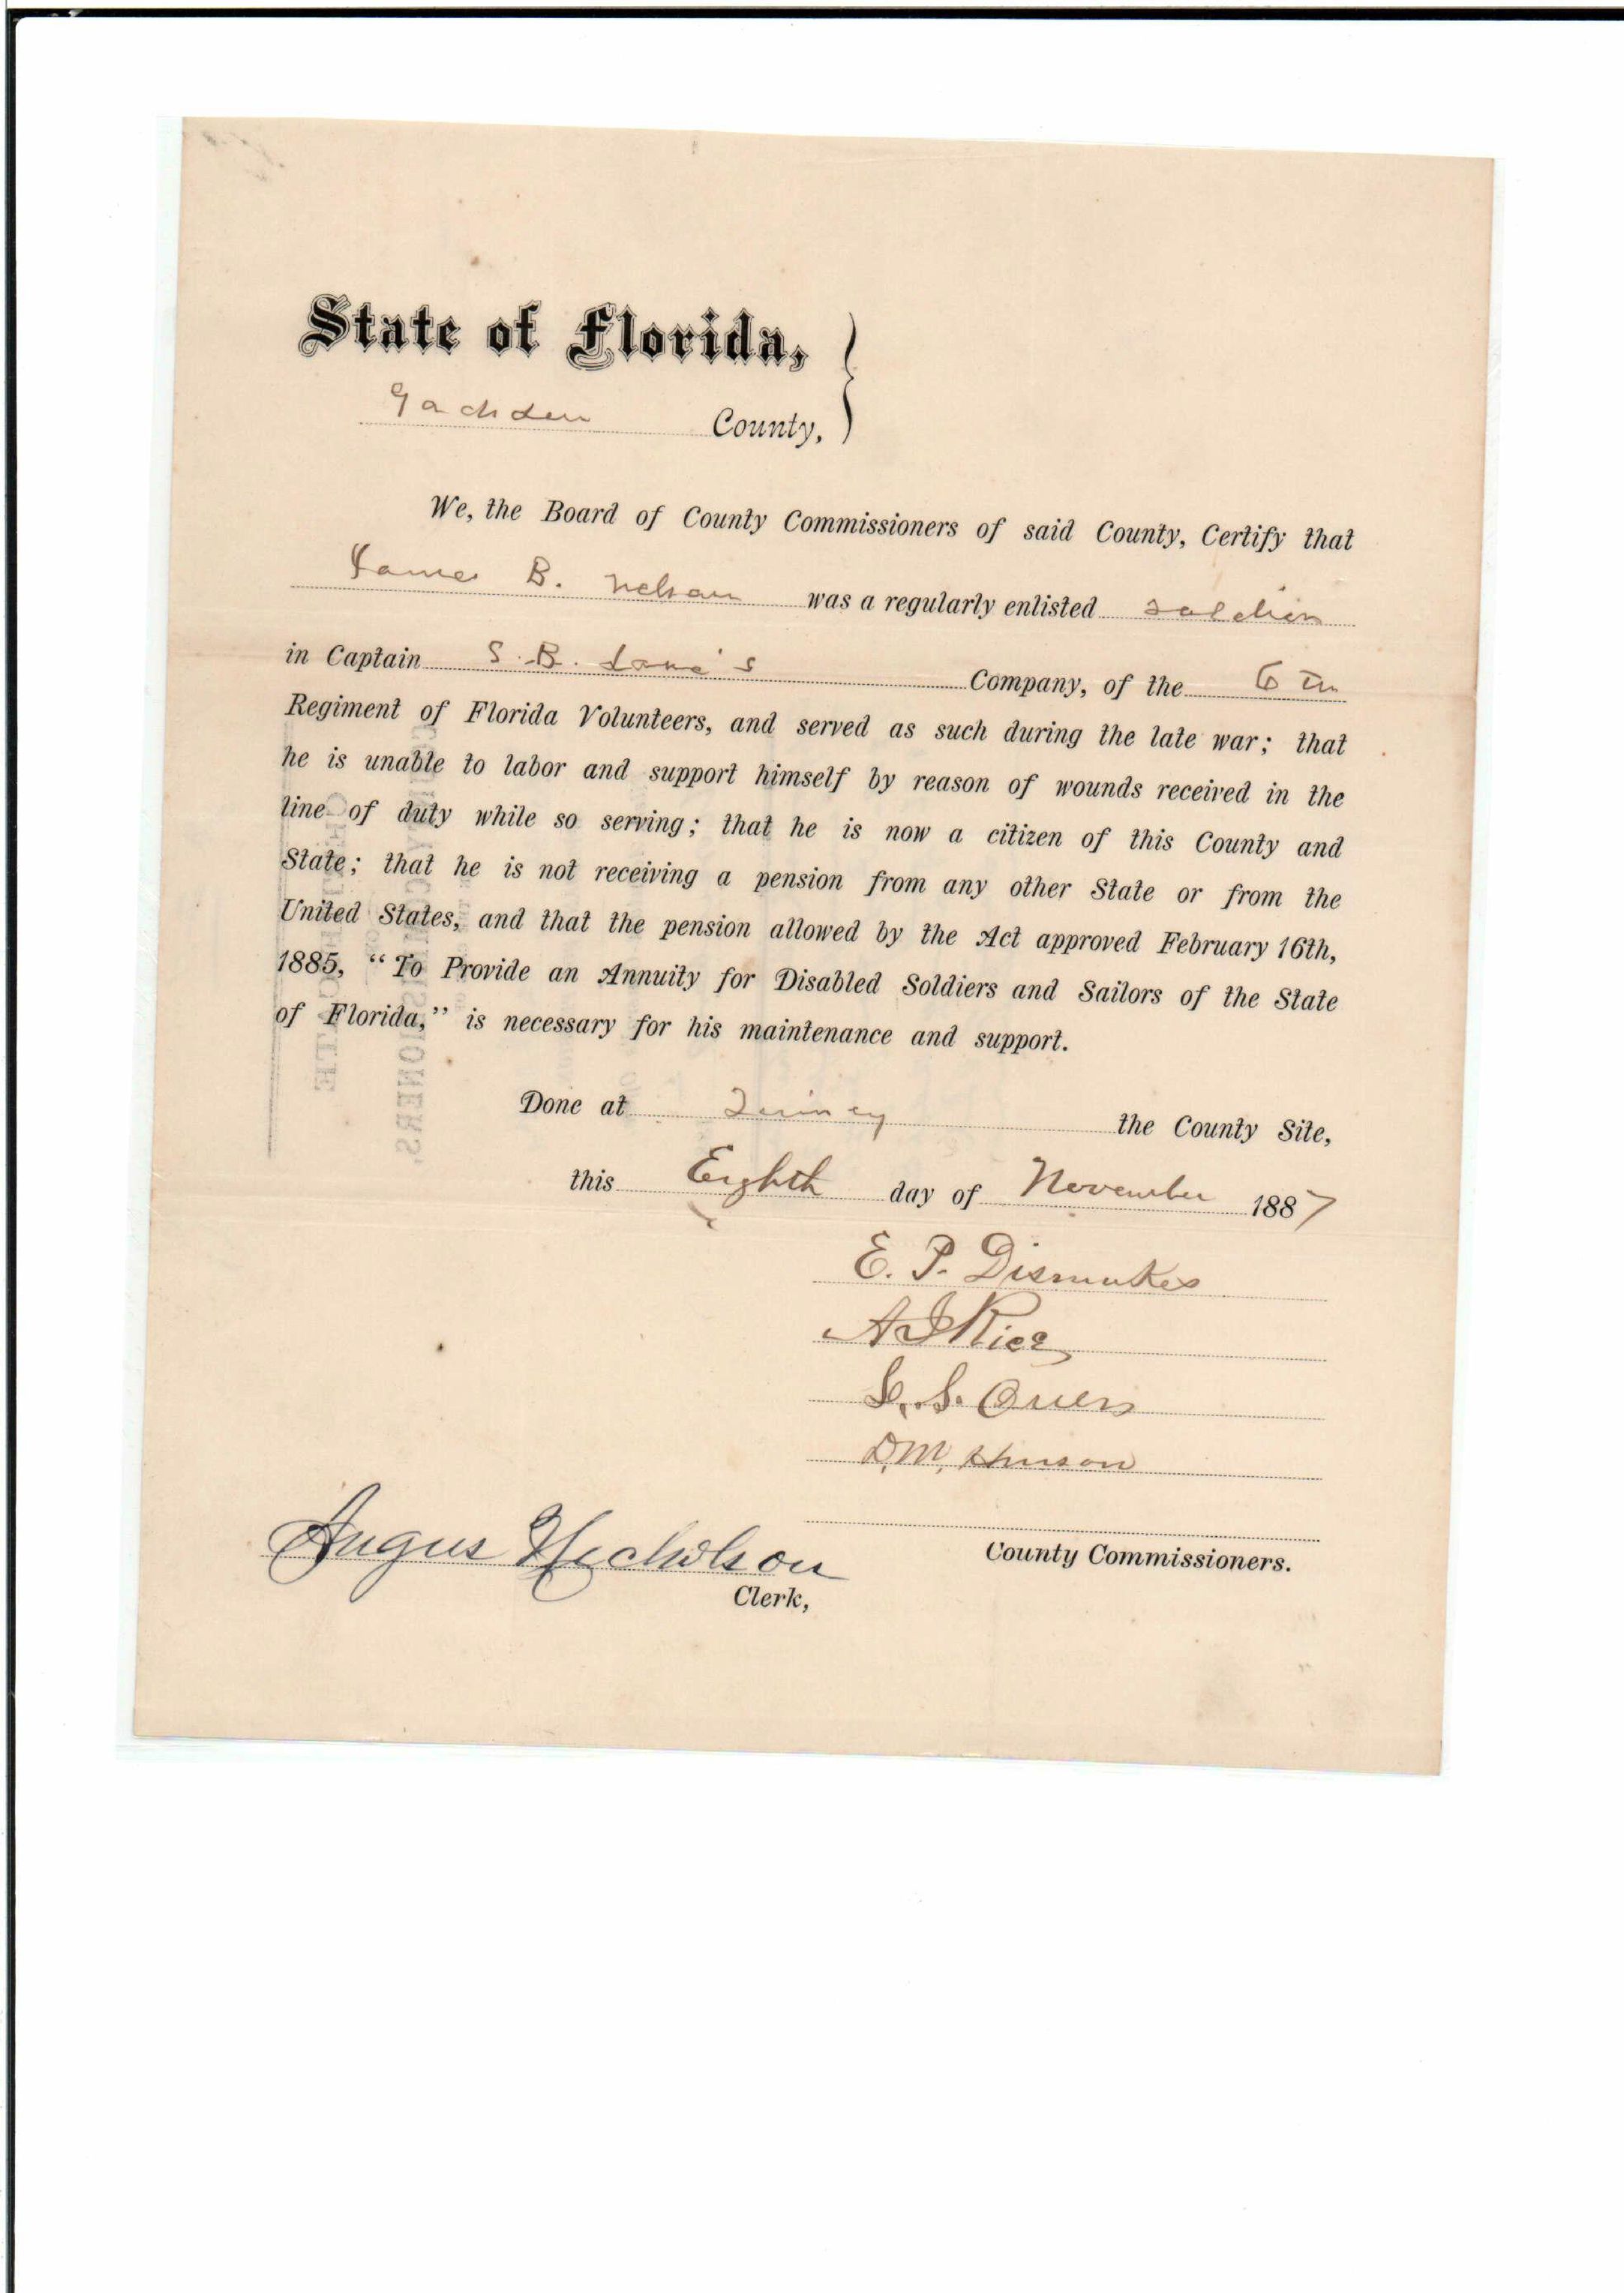 State of Florida,
Gadsden County,
We, the Board of County Commissioners of said County, Certify that
James B. Nelson was a regularly enlisted soldier
in Captain S. B. Love's Company, of the 6th
Regiment of Florida Volunteers, and served as such during the late war; that
he is unable to labor and support himself by reason of wounds received in the
line of duty while so serving; that he is now a citizen of this County and
State; that he is not receiving a pension from any other State or from the
United States, and that the pension allowed by the Act approved February 16th,
1885, “To Provide an Annuity for Disabled Soldiers and Sailors of the State
of Florida,” is necessary for his maintenance and support.
Done at Quincy the County Site,
this Eighth day of November 1887
E. P. Dismukes
A J Rice
S. Owens
D. M. Hinson
County Commissioners.
Angus Nicholson
Clerk,